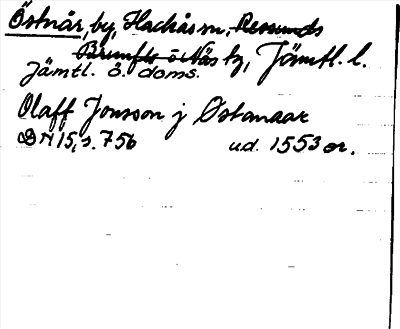 Östnår, by, Hackås sn, Revsunds
Brunflo o. Näs tg, Jämtl. l.
Jämtl. ö. doms.
Olaff Jonsson j Østanaar
DN 15, s. 756 ud. 1553 or.